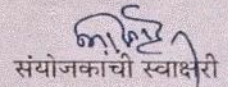 संयोजकांची स्वाक्षरी